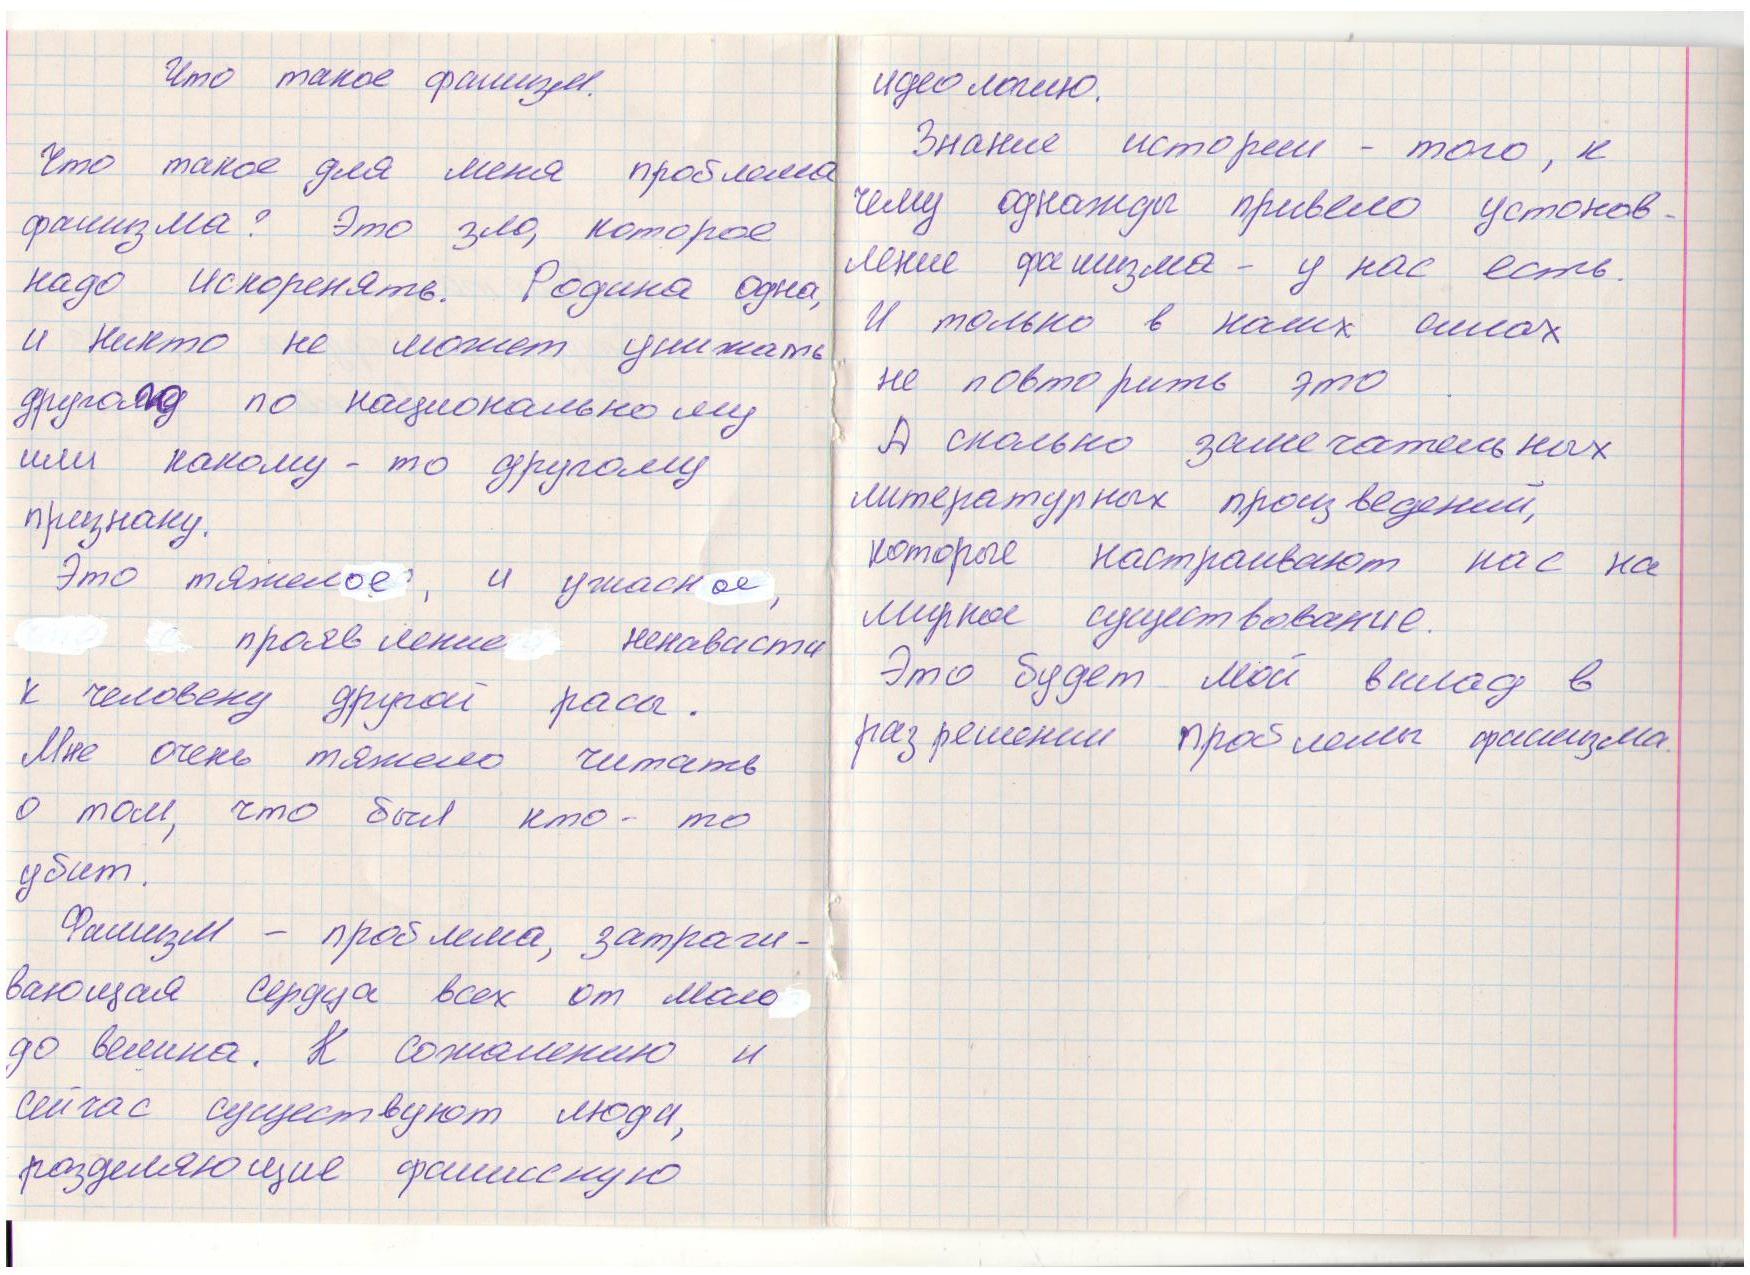 Что такое фашизм.
Что такое для меня проблема
фашизма? Это зло, которое
надо искоренять. Родина одна,
и никто не может унижать
другого по национальному
или какому-то другому
признаку.
Это тяжелое, и ужасное,
проявление ненависти
к человеку другой расы.
Мне очень тяжело читать
о том, что был кто-то
убит.
Фашизм - проблема, затраги-
вающая сердца всех от мало
до велика. К сожалению и
сейчас существуют люди,
разделяющие фашисскую
идеологию.
Знание истории - того, к
чему однажды привело устонов-
ление фашизма - у нас есть.
И только в наших силах
не повторить это
А сколько замечательных
литературных произведений,
которые настраивают нас на
мирное существование.
Это будет мой вклад в
разрешении проблемы фашизма.